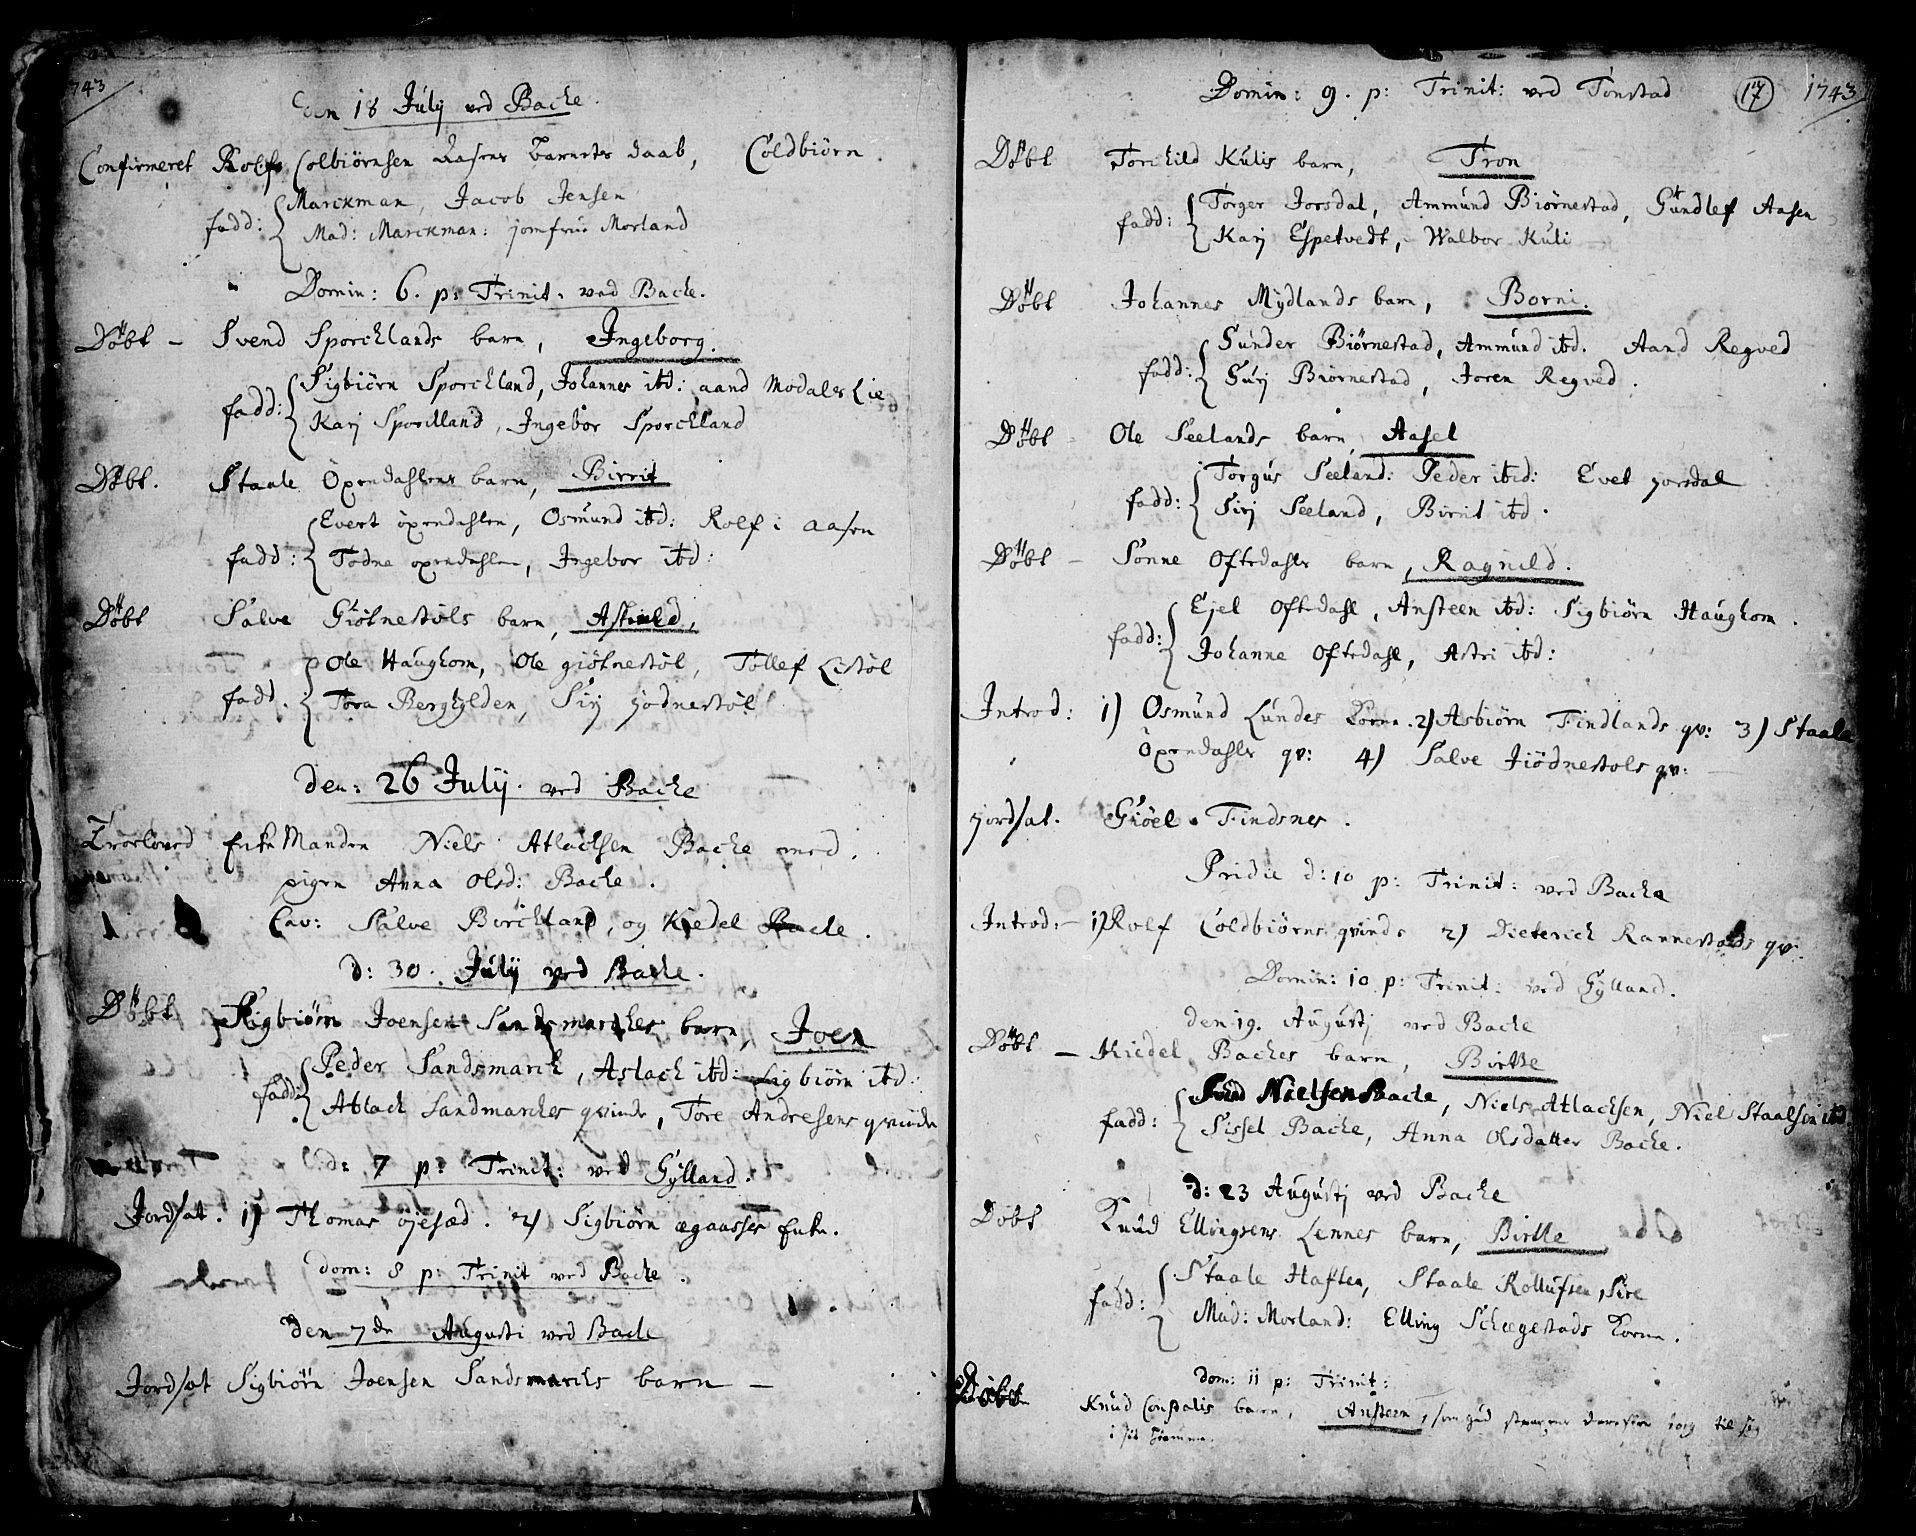 1743
Den 18 Julij ved Backe.
Confirmeret Rolf Colbiörnsen Aasens Barnets daab, Coldbiörn.
fadd: Marckman, Jacob Jensen
Mad: Marckman: jomfrue Morland
Domin: 6. p: Trinit: ved Backe.
Döbt – Svend Sporcklands barn, Ingeborg.
fadd: Sigbiörn Sporckland, Johannes ibd: aand Modals Lie
Karj Sporckland, Ingebor Sporckland
Döbt. Staale Öxendahlens barn, Birrit
fadd: Evert öxendahlen, Osmund ibd: Rolf i aasen
Todne oxendahlen, Ingebor ibd:
Döbt Salve Giötnestöls barn, Astrild,
fadd. Ole Haughom, Ole giötnestöl, Tollef Lestöl
Tora Berghylden, Sirj jodnestöl
den: 26 Julij. ved Backe
Troeloved Enke Manden Niels Atlachsen Backe med
pigen Anna Olsd: Backe.
Cav: Salve Birckland, og Kiedel Backe.
d: 30. Julij ved Backe.
Döbt Sigbiörn Joensen Sandsmarches barn, Joen
fadd: Peder Sandsmarck, Aslach ibd: Sigbiörn ibd:
Atlach Sandmarches qvinde, Tore Andresens qvinde
d: 7 p: Trinit: ved Gylland.
Jordsat. 1) Thomas öjesæd. 2) Sigbiörn ægaasses Enke.
dom: 8 p: Trinit ved Backe.
Den 7de Augusti ved Backe
Jordsat Sigbiörn Joensen Sandsmarchs barn –
Domin: 9. p: Trinit: ved Tonstad 17 1743
Döbt Torchild Kulis barn, Tron
fadd: Torger Josdal, Ammund Biörnestad, Gundlef Aasen
Karj Espetvedt, Walbor Kuli
Döbt Johannes Mydlands barn, Borni.
fadd: Gunder Biörnestad, Ammund ibd. Aand Regved
Gurj Biörnestad, Joren Regved.
Döbt Ole Seelands barn, Aasel
fadd: Torgus Seeland: Peder ibid: Evet josdal
Sirj Seeland, Birrit ibd.
Döbt – Sönne Oftedahls barn, Ragnild.
fadd: Ejel Oftedahl, Ansteen ibd: Sigbiörn Haughom.
Johanne Oftedahl, Astri ibd:
Introd: 1) Osmund Lundes Kone. 2) Asbiörn Findlands qv: 3) Staale
Öxendahls qv: 4) Salve Jiödnestols qv:
jordsat. Giöel Findsnes.
Pridie d: 10 p: Trinit: ved Backe
Introd: – 1) Rolf Coldbiörns qvinde 2) Dieterich Rannestads qv:
Domin: 10 p: Trinit: ved Gylland.
den 19. Augustj ved Backe
Döbt – Kiedel Backes barn, Birtte
fadd: Svend Nielsen Backe, Niels Atlachsen, Niel Staalsen ibd.
Sissel Backe, Anna Olsdatter Backe.
d: 23 Augustj ved Backe
Döbt Knud Ellingsens Lennes barn, Birtte
fadd: Staale Haften, Staale Rollufsen, Sire
Mad: Morland: Elling Schegestads Kone.
dom: 11 p: Trinit:
Döbt Knud Constalis barn, Ansteen, som gud straxens derefter tog til sig
i sit